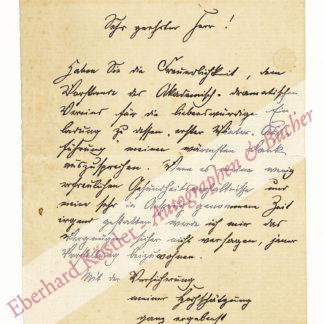 Sehr geehrter Herr!
Haben Sie die Freundlichkeit, dem
Vorstande des Akademisch-dramatischen
Vereins für die liebenswürdige Ein-
ladung zu dessen erster Theater-Auf-
führung meinen wärmsten Dank
auszusprechen. Wenn es meine wenig
erfreulichen Gesundheitsverhältnisse und
meine sehr in genommene Zeit
irgend gestatten, werde ich mir das
Vergnügen sicher nicht versagen, jener
Vorstellung beizuwohnen.
Mit der Versicherung
meiner Hochschätzung
ganz ergebenst
Eberhard Köstler Autographen & Bücher